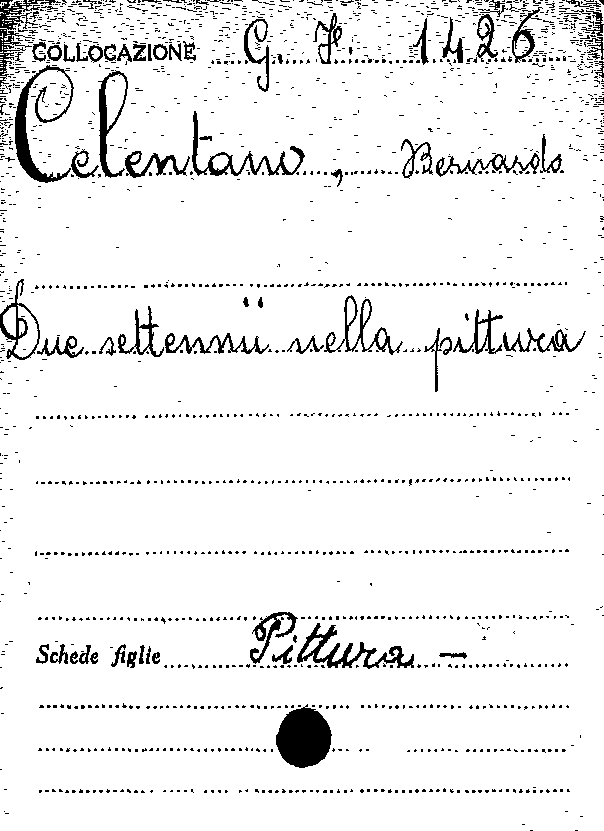 COLLOCAZIONE G. F. 1426
Celentano, Bernardo
Due settennii nella pittura
Schede figlie Pittura -